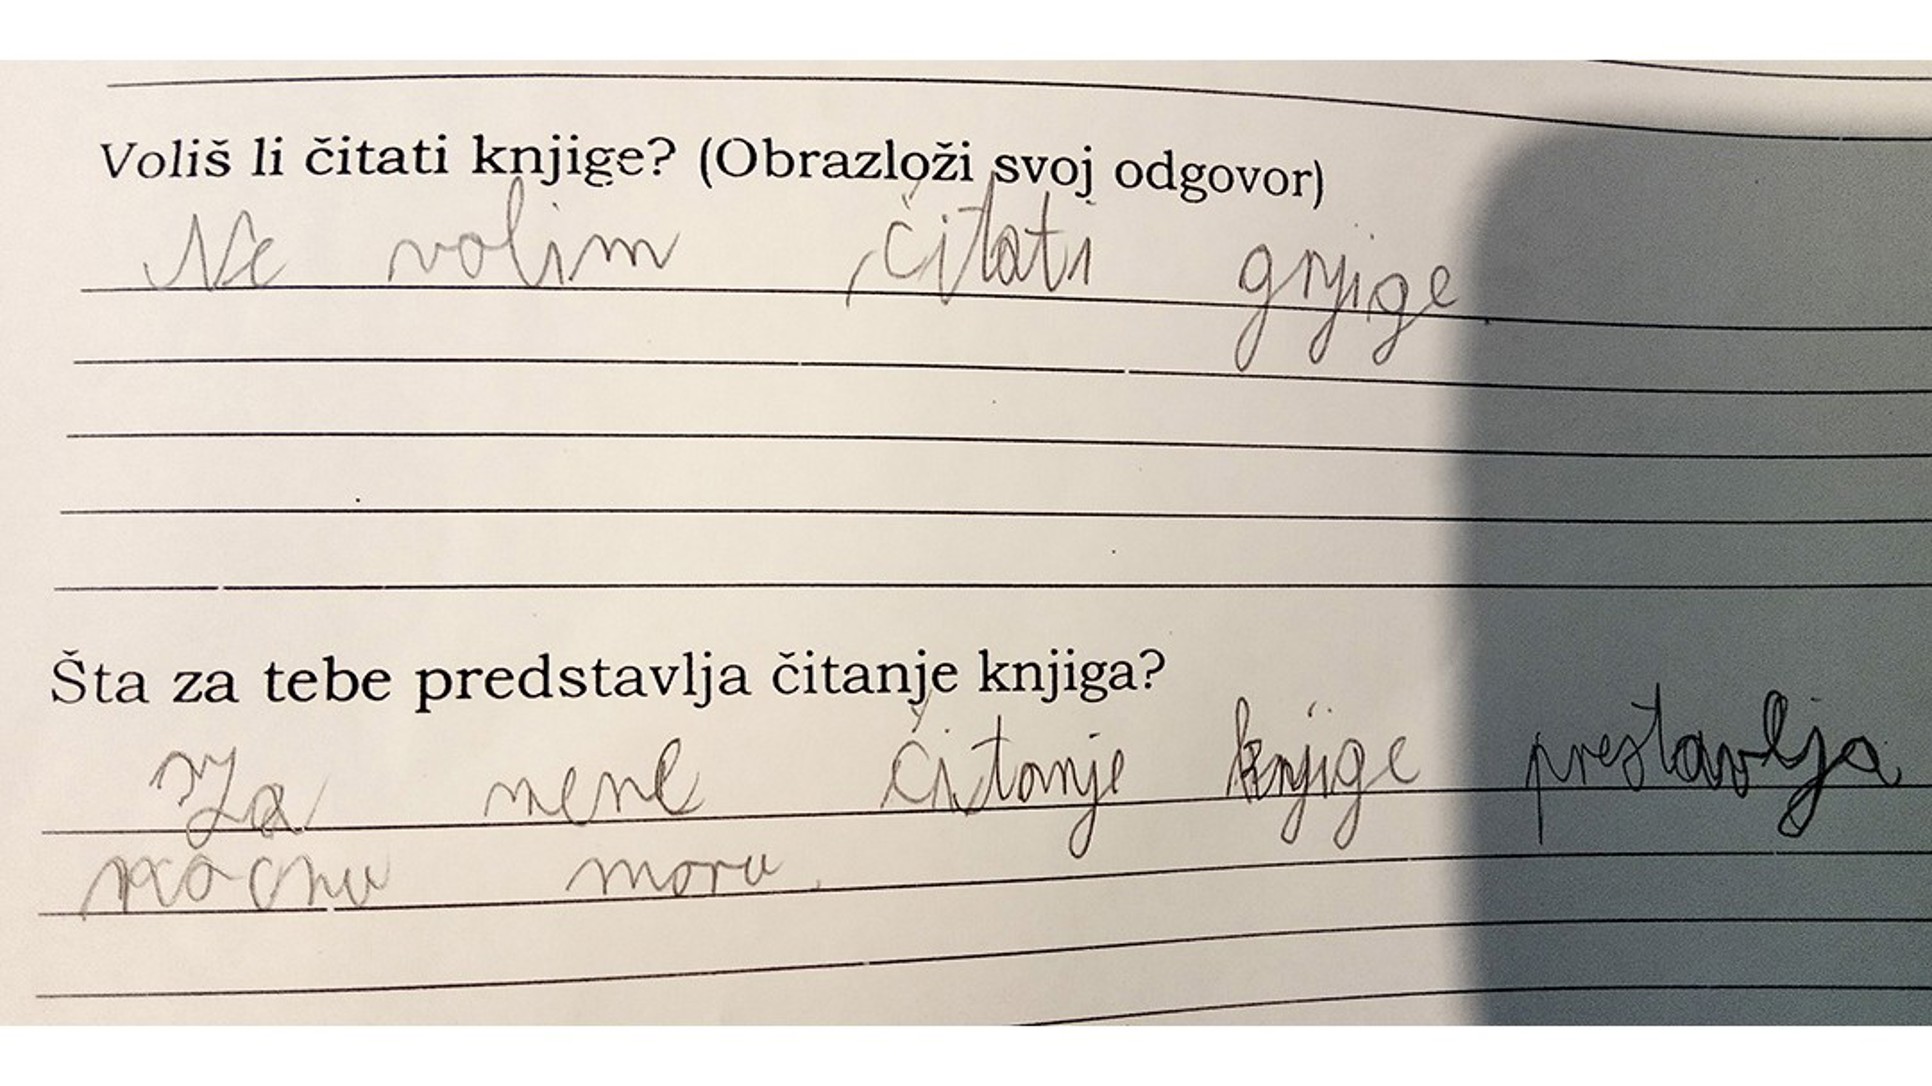 Voliš li čitati knjige? (Obrazloži svoj odgovor)
Ne volim čitati gnjige.
Šta za tebe predstavlja čitanje knjiga?
Za mene čitanje knjige prestavlja
noćnu moru.